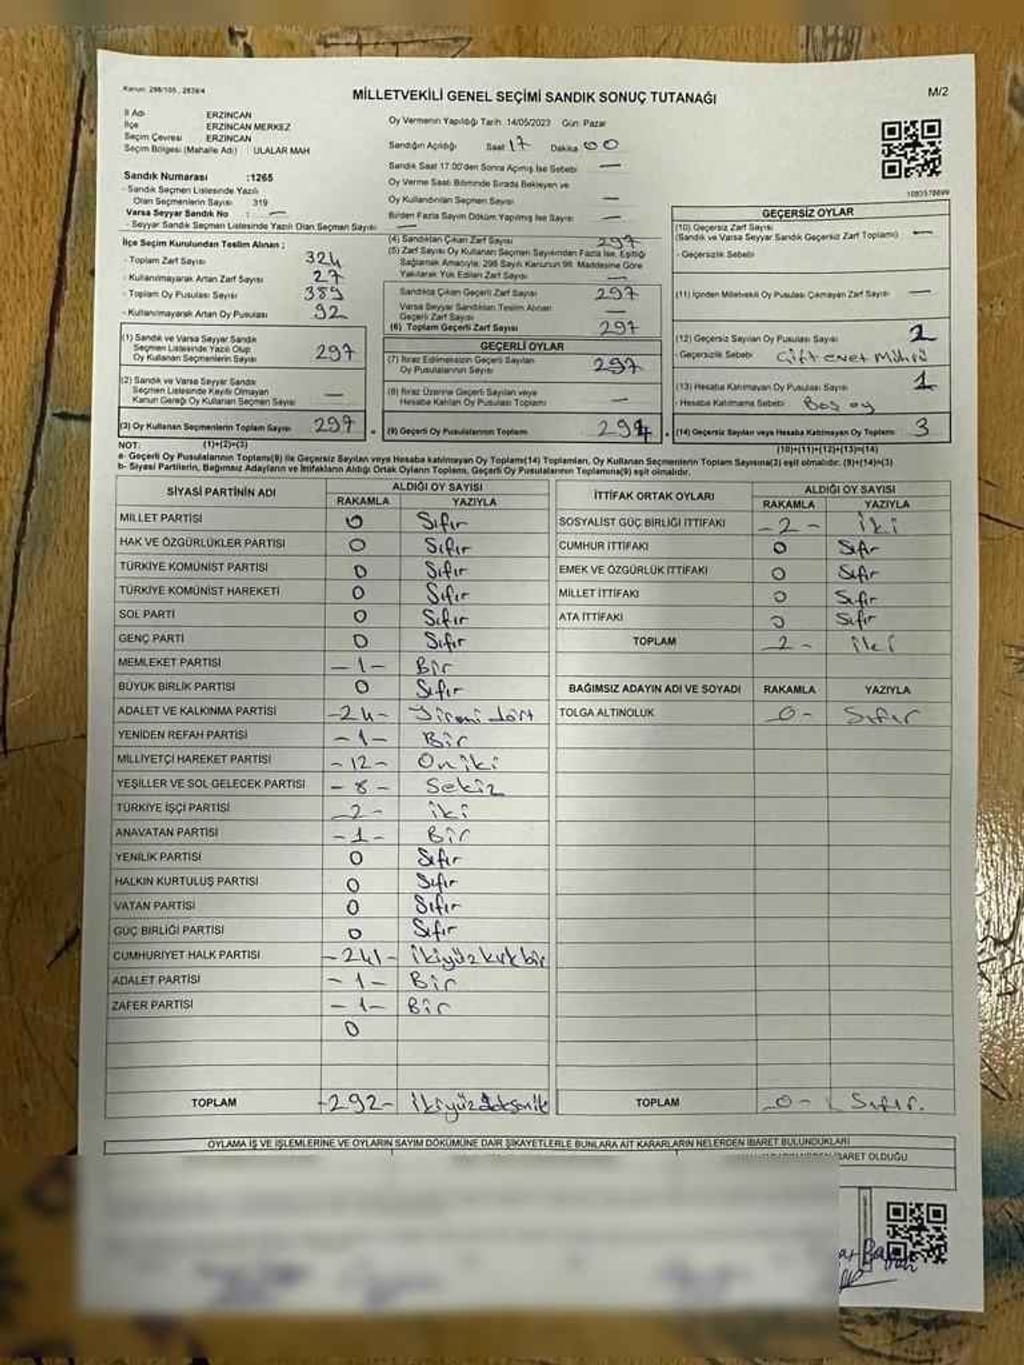 Kanun: 298/105, 2839/4
MİLLETVEKİLİ GENEL SEÇİMİ SANDIK SONUÇ TUTANAĞI
M/2
İl Adı ERZİNCAN
İlçe ERZİNCAN MERKEZ
Seçim Çevresi ERZİNCAN
Seçim Bölgesi (Mahalle Adı) : ULALAR MAH
Oy Vermenin Yapıldığı Tarih :14/05/2023 Gün: Pazar
Sandığın Açıldığı Saat 17 Dakika 00
Sandık Saat 17.00'den Sonra Açılmış İse Sebebi —
Oy Verme Saati Bitiminde Sırada Bekleyen ve
Oy Kullandırılan Seçmen Sayısı —
Birden Fazla Sayım Döküm Yapılmış İse Sayısı —
Sandık Numarası :1265
- Sandık Seçmen Listesinde Yazılı
Olan Seçmenlerin Sayısı 319
Varsa Seyyar Sandık No : —
- Seyyar Sandık Seçmen Listesinde Yazılı Olan Seçmen Sayısı —
İlçe Seçim Kurulundan Teslim Alınan ;
- Toplam Zarf Sayısı 324
- Kullanılmayarak Artan Zarf Sayısı 27
- Toplam Oy Pusulası Sayısı 389
- Kullanılmayarak Artan Oy Pusulası 92
(1) Sandık ve Varsa Seyyar Sandık
Seçmen Listesinde Yazılı Olup
Oy Kullanan Seçmenlerin Sayısı 297
(2) Sandık ve Varsa Seyyar Sandık
Seçmen Listesinde Kayıtlı Olmayan
Kanun Gereği Oy Kullanan Seçmen Sayısı —
(3) Oy Kullanan Seçmenlerin Toplam Sayısı 297
(4) Sandıktan Çıkan Zarf Sayısı 297
(5) Zarf Sayısı Oy Kullanan Seçmen Sayısından Fazla İse, Eşitliği
Sağlamak Amacıyla, 298 Sayılı Kanunun 98. Maddesine Göre
Yakılarak Yok Edilen Zarf Sayısı —
Sandıkta Çıkan Geçerli Zarf Sayısı 297
Varsa Seyyar Sandıktan Teslim Alınan
Geçerli Zarf Sayısı —
(6) Toplam Geçerli Zarf Sayısı 297
GEÇERLİ OYLAR
(7) İtiraz Edilmeksizin Geçerli Sayılan
Oy Pusulalarının Sayısı 297
(8) İtiraz Üzerine Geçerli Sayılan veya
Hesaba Katılan Oy Pusulası Toplamı —
(9) Geçerli Oy Pusulalarının Toplamı 294
GEÇERSİZ OYLAR
(10) Geçersiz Zarf Sayısı
(Sandık ve Varsa Seyyar Sandık Geçersiz Zarf Toplamı) —
- Geçersizlik Sebebi
(11) İçinden Milletvekili Oy Pusulası Çıkmayan Zarf Sayısı —
(12) Geçersiz Oy Pusulası Sayısı 2
- Geçersizlik Sebebi Çift evet Mührü
(13) Hesaba Katılmayan Oy Pusulası Sayısı 1
- Hesaba Katılmama Sebebi Boş oy
(14) Geçersiz Sayılan veya Hesaba Katılmayan Oy Toplamı 3
NOT: (1)+(2)=(3) (10)+(11)+(12)+(13)=(14)
a- Geçerli Oy Pusulalarının Toplamı(9) ile Geçersiz Sayılan veya Hesaba katılmayan Oy Toplamı(14) Toplamları, Oy Kullanan Seçmenlerin Toplam Sayısına(3) eşit olmalıdır. (9)+(14)=(3)
b- Siyasi Partilerin, Bağımsız Adayların ve İttifakların Aldığı Ortak Oyların Toplamı, Geçerli Oy Pusulalarının Toplamına(9) eşit olmalıdır.
SİYASİ PARTİNİN ADI ALDIĞI OY SAYISI
RAKAMLA YAZIYLA
MİLLET PARTİSİ 0 Sıfır
HAK VE ÖZGÜRLÜKLER PARTİSİ 0 Sıfır
TÜRKİYE KOMÜNİST PARTİSİ 0 Sıfır
TÜRKİYE KOMÜNİST HAREKETİ 0 Sıfır
SOL PARTİ 0 Sıfır
GENÇ PARTİ 0 Sıfır
MEMLEKET PARTİSİ -1- Bir
BÜYÜK BİRLİK PARTİSİ 0 Sıfır
ADALET VE KALKINMA PARTİSİ -24- Yirmi dört
YENİDEN REFAH PARTİSİ -1- Bir
MİLLİYETÇİ HAREKET PARTİSİ -12- Oniki
YEŞİLLER VE SOL GELECEK PARTİSİ -8- Sekiz
TÜRKİYE İŞÇİ PARTİSİ -2- iki
ANAVATAN PARTİSİ -1- Bir
YENİLİK PARTİSİ 0 Sıfır
HALKIN KURTULUŞ PARTİSİ 0 Sıfır
VATAN PARTİSİ 0 Sıfır
GÜÇ BİRLİĞİ PARTİSİ 0 Sıfır
CUMHURİYET HALK PARTİSİ -241- ikiyüzkırkbir
ADALET PARTİSİ -1- Bir
ZAFER PARTİSİ -1- Bir
0
TOPLAM -292-
İTTİFAK ORTAK OYLARI ALDIĞI OY SAYISI
RAKAMLA YAZIYLA
SOSYALİST GÜÇ BİRLİĞİ İTTİFAKI -2- iki
CUMHUR İTTİFAKI 0 Sıfır
EMEK VE ÖZGÜRLÜK İTTİFAKI 0 Sıfır
MİLLET İTTİFAKI 0 Sıfır
ATA İTTİFAKI 0 Sıfır
TOPLAM 2- iki
BAĞIMSIZ ADAYIN ADI VE SOYADI RAKAMLA YAZIYLA
TOLGA ALTINOLUK -0- Sıfır
TOPLAM -0- Sıfır.
OYLAMA İŞ VE İŞLEMLERİNE VE OYLARIN SAYIM DÖKÜMÜNE DAİR ŞİKAYETLERLE BUNLARA AİT KARARLARIN NELERDEN İBARET BULUNDUKLARI
İBARET OLDUĞU